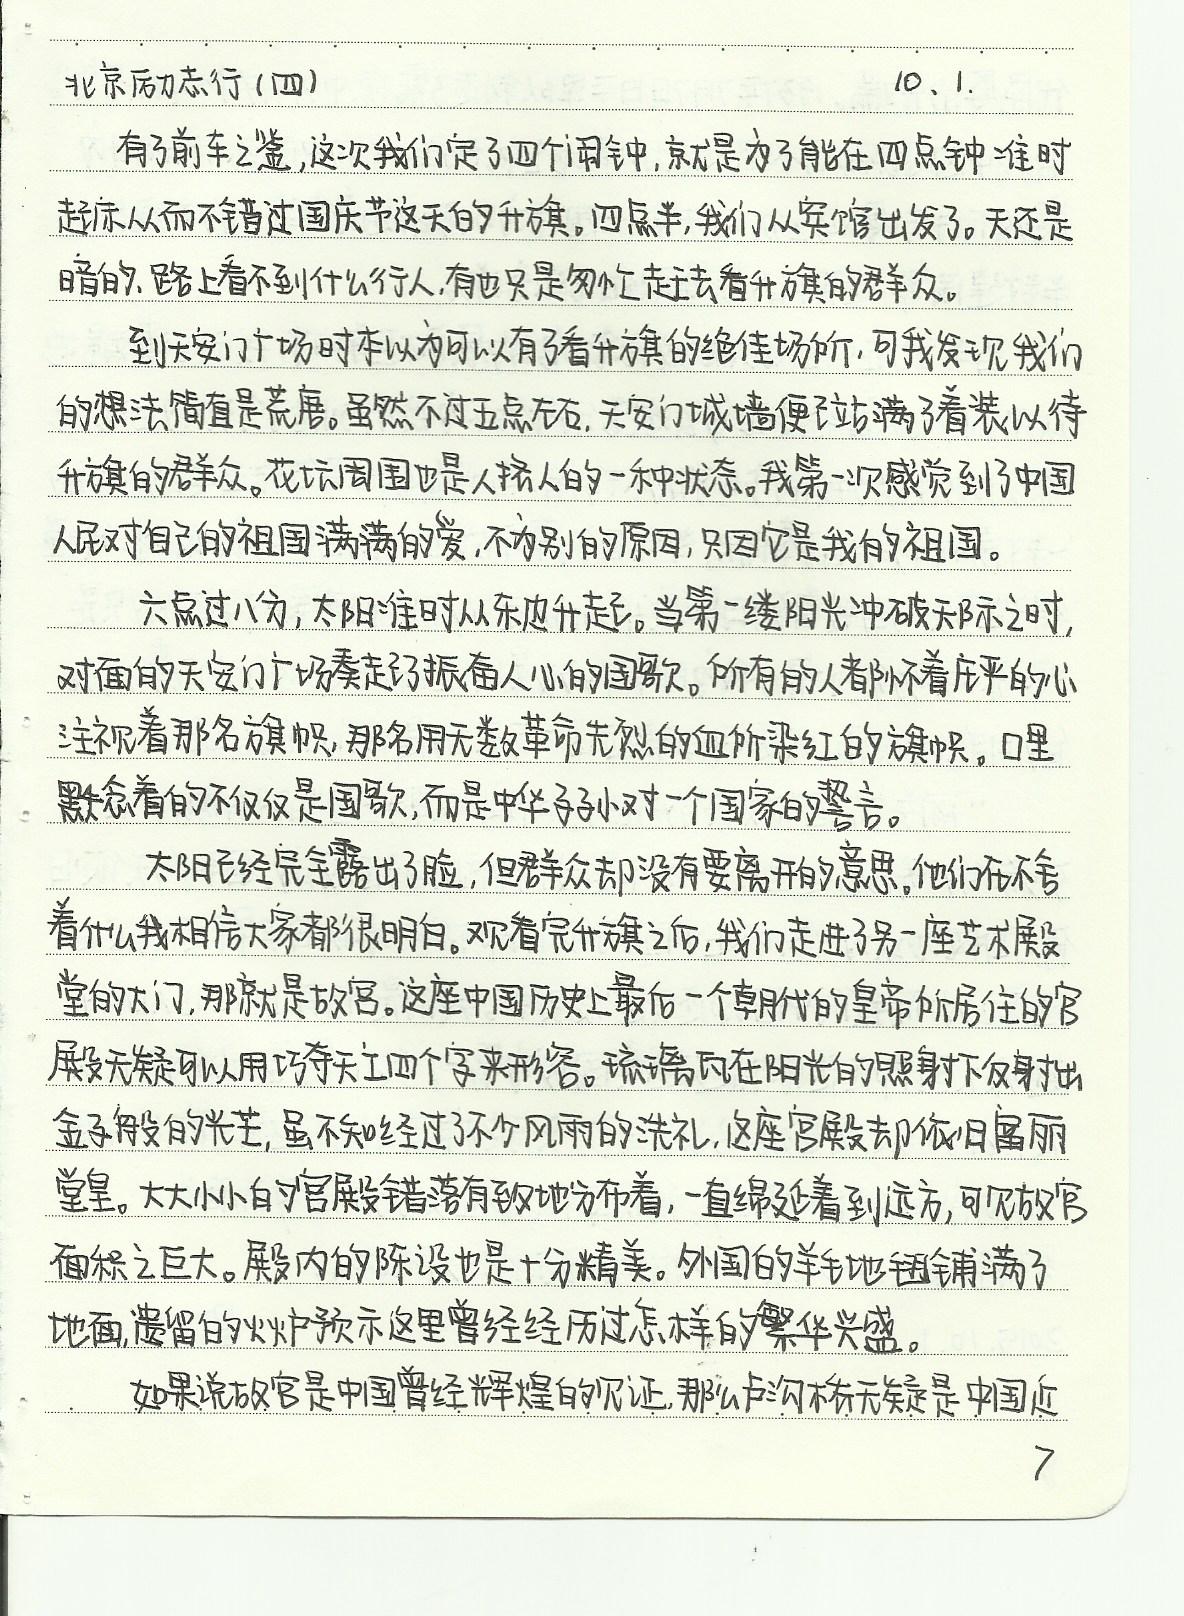 北京励志行(四) 10、1.
有了前车之鉴,这次我们定了四个闹钟,就是为了能在四点钟准时
起床从而不错过国庆节这天的升旗。四点半,我们从宾馆出发了。天还是
暗的,路上看不到什么行人,有也只是匆忙赶去看升旗的群众。
到天安门广场时本以为可以有了看升旗的绝佳场所,可我发现我们
的想法简直是荒唐。虽然不过五点左右,天安门城墙便已站满了着装以待
升旗的群众。花坛周围也是人挤人的一种状态。我第一次感觉到了中国
人民对自己的祖国满满的爱,不为别的原因,只因它是我的祖国。
六点过八分,太阳准时从东边升起。当第一缕阳光冲破天际之时,
对面的天安门广场奏起了振奋人心的国歌。所有的人都怀着庄严的心
注视着那名旗帜,那名用无数革命先烈的血所染红的旗帜。口里
默念着的不仅仅是国歌,而是中华子孙对一个国家的誓言。
太阳已经完全露出了脸,但群众却没有要离开的意思。他们在不舍
着什么我相信大家都很明白。观看完升旗之后,我们走进了另一座艺术殿
堂的大门,那就是故宫。这座中国历史上最后一个朝代的皇帝所居住的宫
殿无疑可以用巧夺天工四个字来形容。琉璃瓦在阳光的照射下反射出
金子般的光芒,虽不知经过了不少风雨的洗礼,这座宫殿却依旧富丽
堂皇。大大小小的宫殿错落有致地分布着,一直绵延着到远方,可见故宫
面积之巨大。殿内的陈设也是十分精美。外国的羊毛地毯铺满了
地面,遗留的火炉预示这里曾经经历过怎样的繁华兴盛。
如果说故宫是中国曾经辉煌的见证,那么卢沟桥无疑是中国近
7